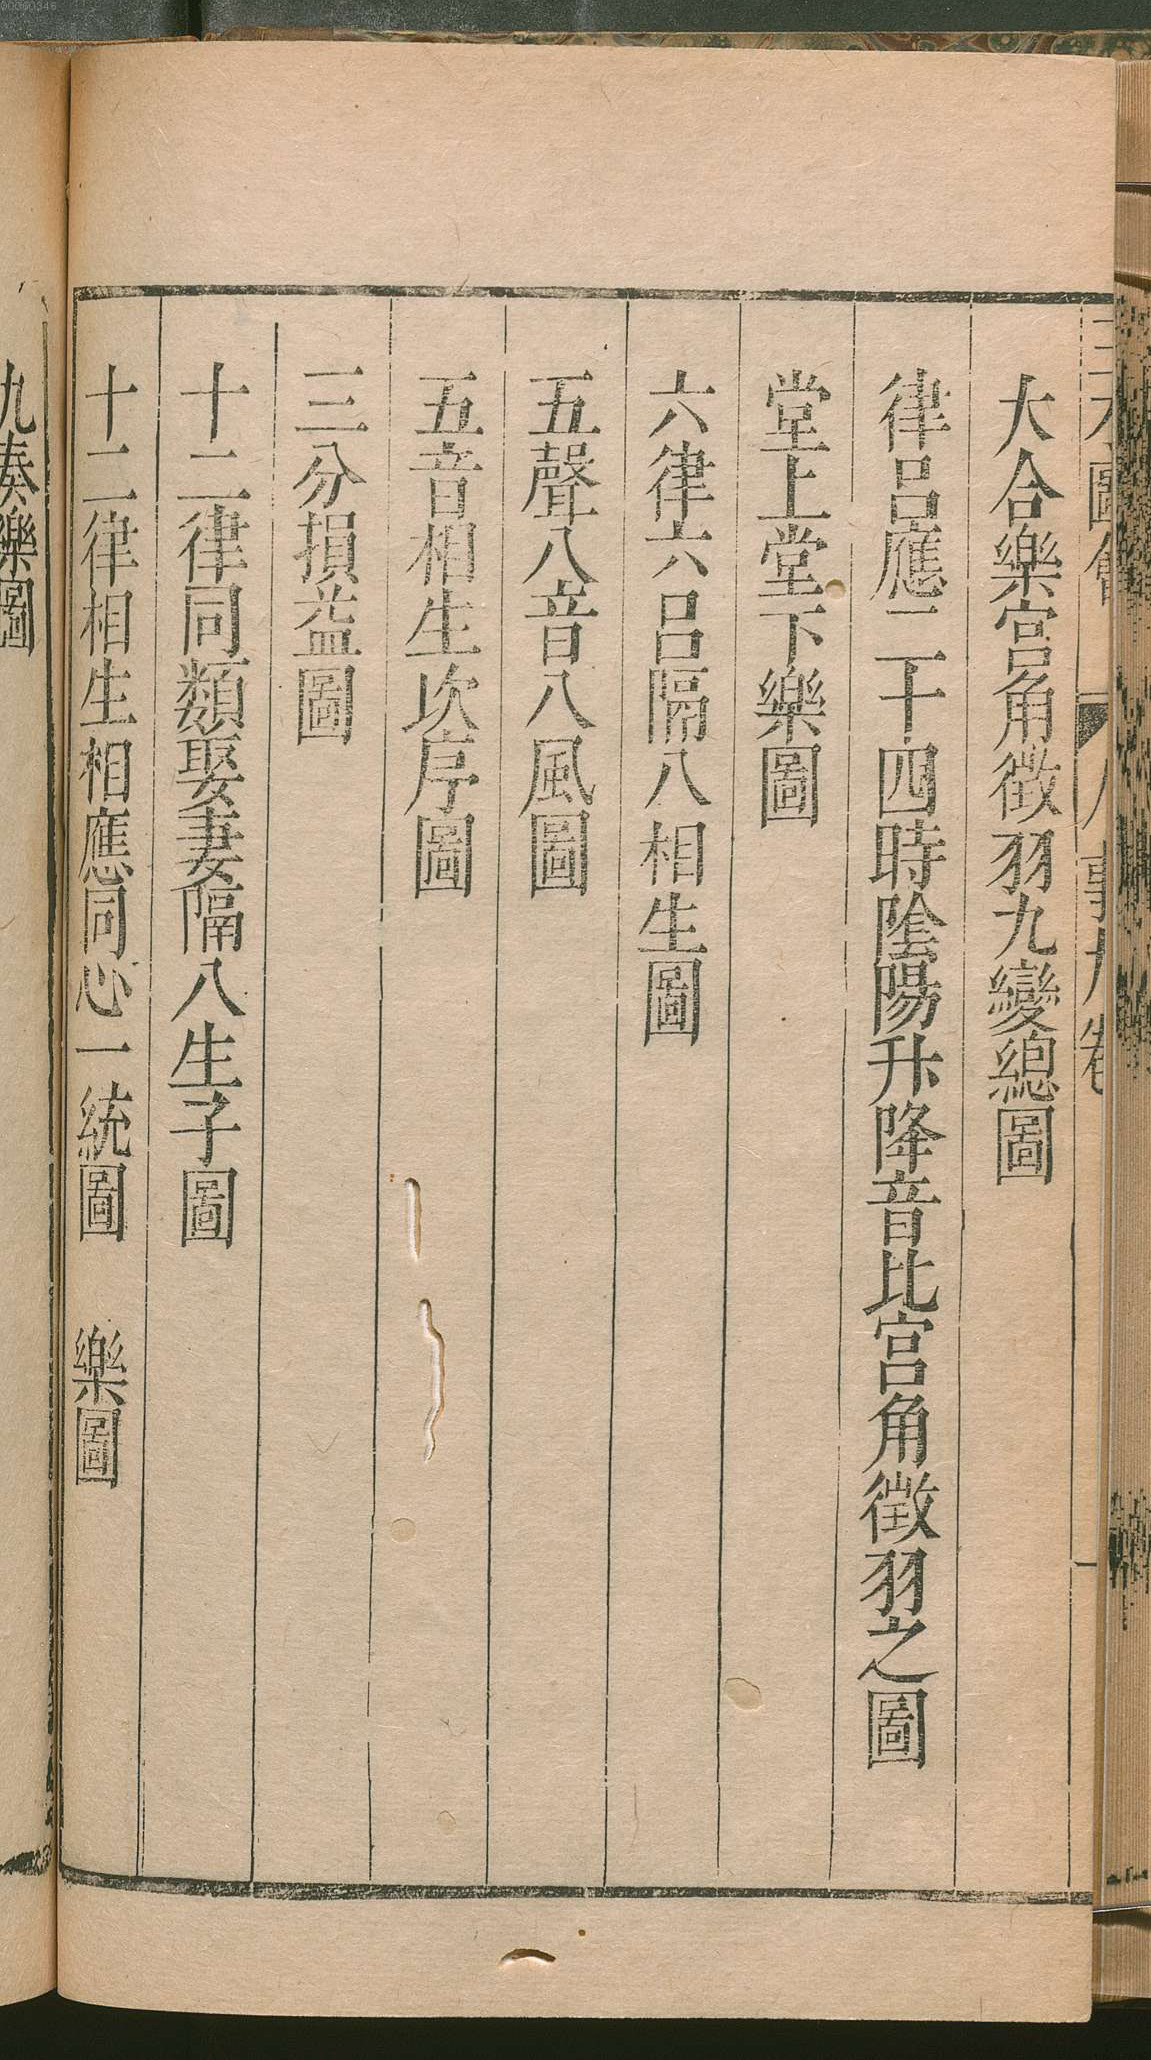 大合樂宮角徵羽九變總圖
律呂應二十四時陰陽升降音比宮角徵羽之圖
堂上堂下樂圖
六律六呂隔八相生圖
五聲八音八風圖
五音相生次序圖
三分損益圖
十二律同類娶妻隔八生子圖
十二律相生相應同心一統圖 樂圖
九奏樂圖